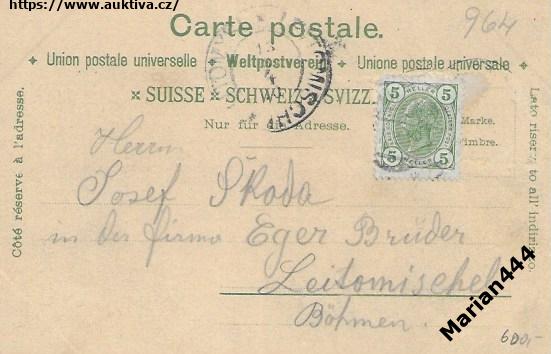 https://www.auktiva.cz/
Carte postale.
964
Union postale universelle ✦ Weltpostverein ✦ Unione postale universale
× SUISSE × SCHWEIZ × SVIZZ.
Nur für die Adresse.
Marke.
Timbre.
Côté réservé à l'adresse.
Lato riserv. to all' indirizzo.
5 HELLER 5
5 HELLER 5
Herrn
Josef Škoda
in der Firma Eger Brüder
Leitomischel
Böhmen.
Marian444
600,-